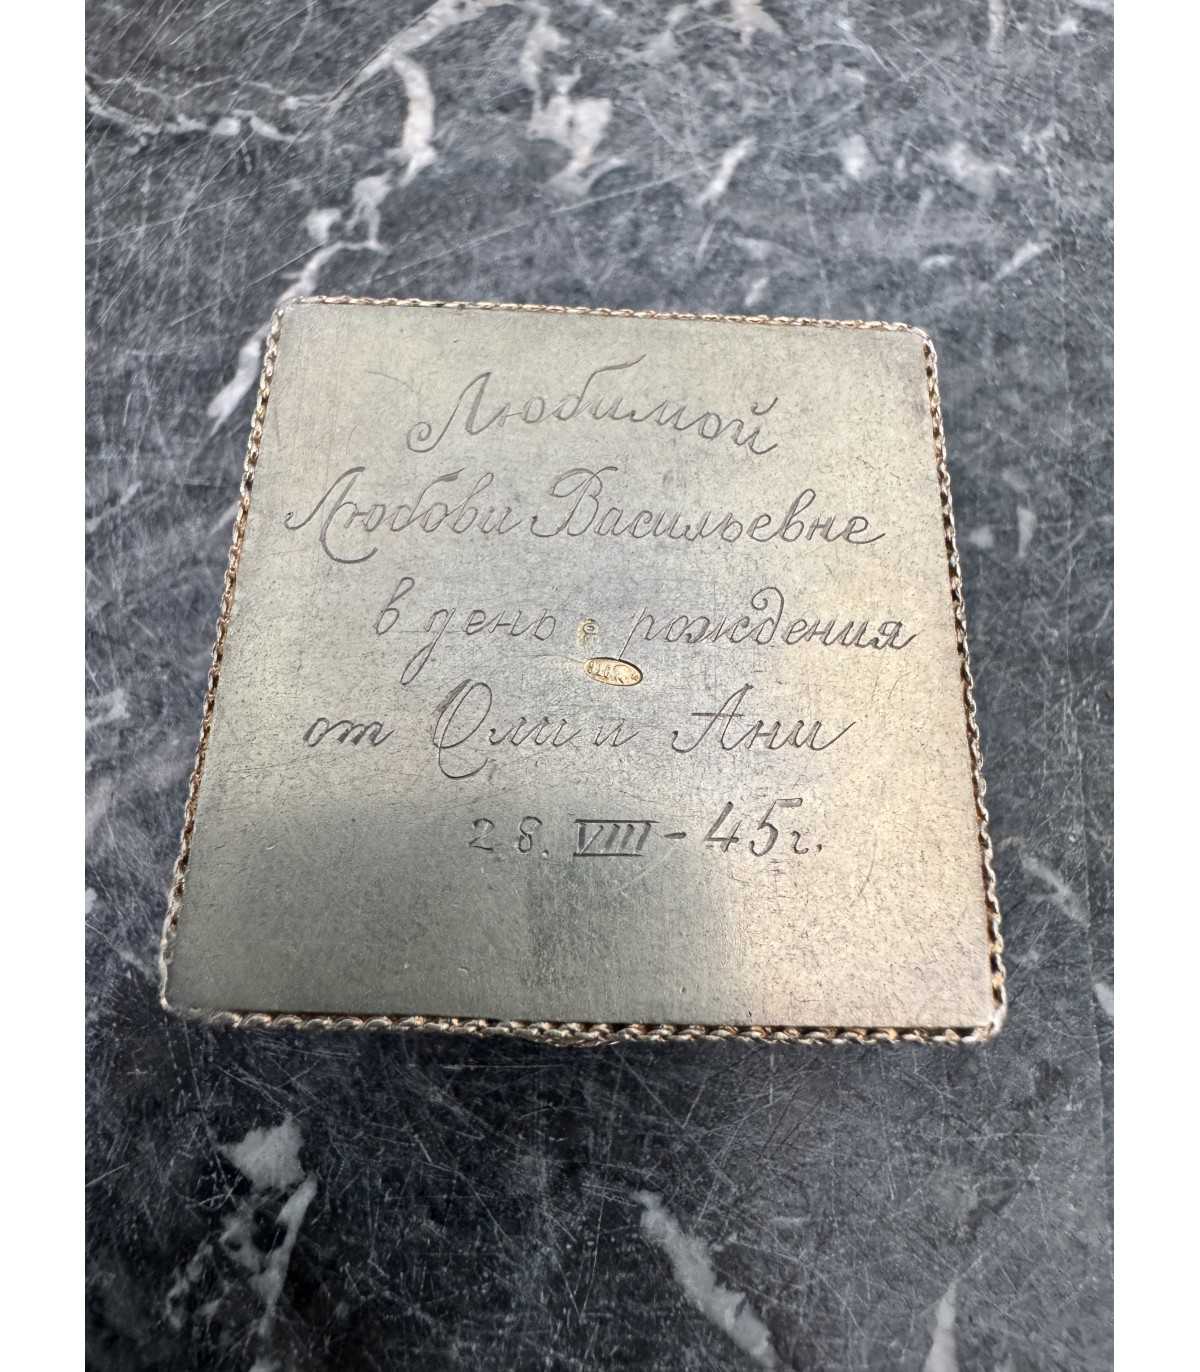 Любимой
Любови Васильевне
в день рождения
от Оли и Ани
28. VIII - 45 г.